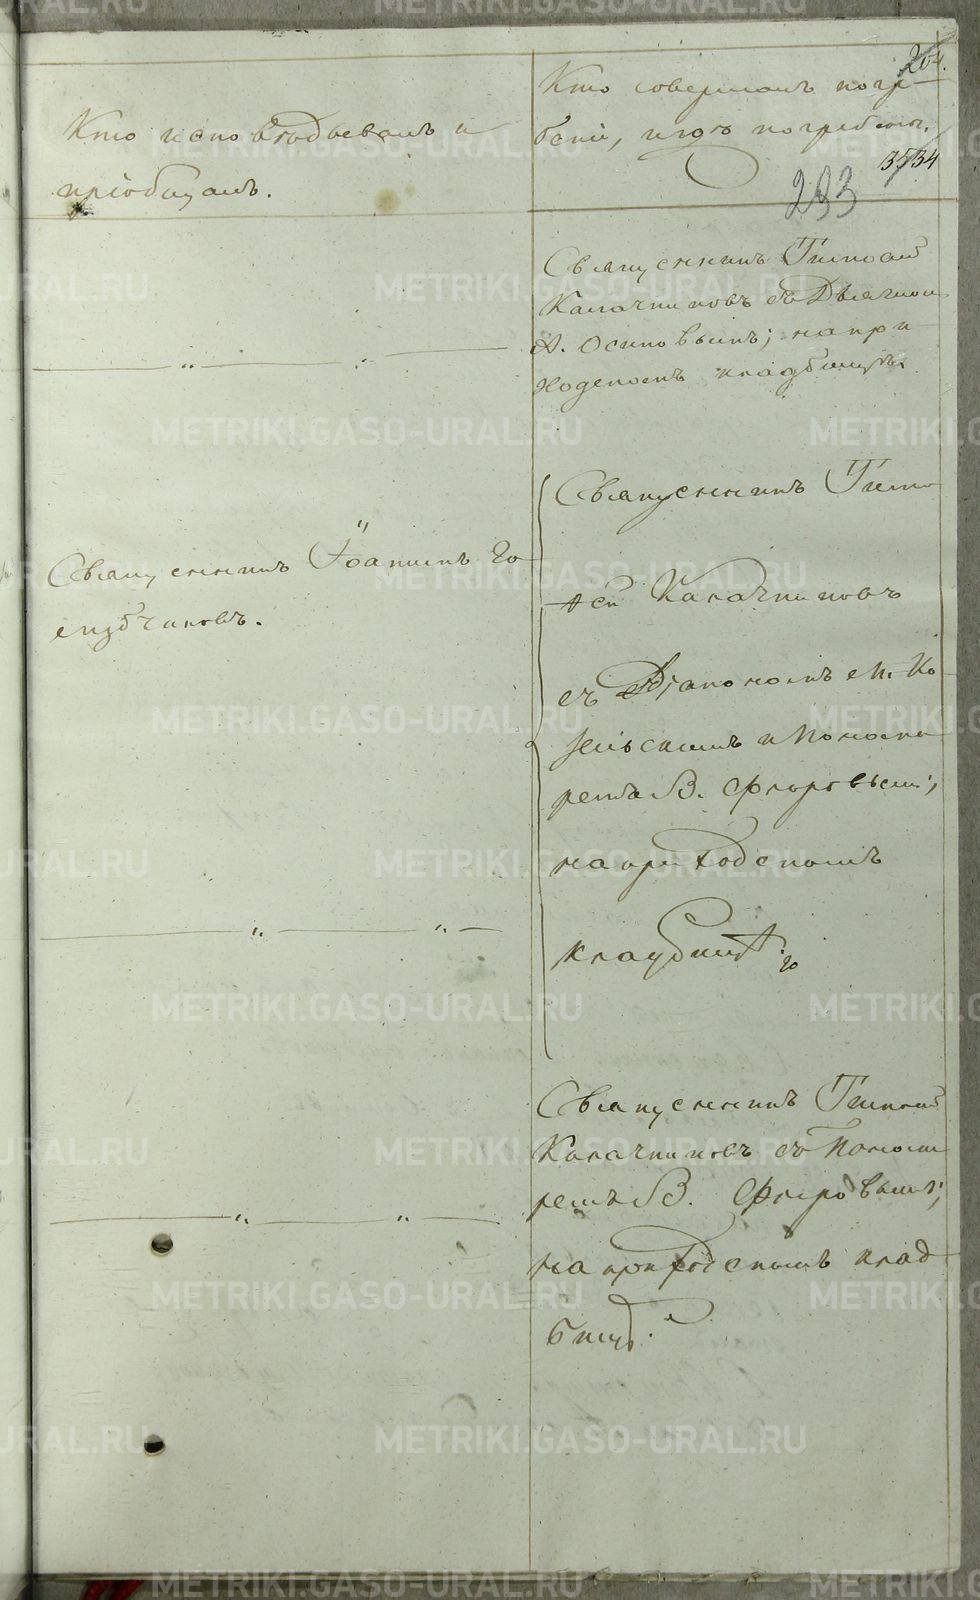 204.
Кто исповѣдывалъ и
пріобщалъ.
Кто совершалъ погре-
беніе, и гдѣ погребены.
35/34
293
Священникъ Тимоѳей
Калачниковъ съ Дьячкомъ
А. Осиповымъ; на при-
ходскомъ кладбищѣ.
Священникъ Іоаннъ
Священникъ Тимо-
ѳей Калачниковъ
съ Діакономъ М. Ко-
и Понома-
ремъ В. Флоровымъ;
на приходскомъ
кладбищѣ.
Священникъ Тимоѳей
Калачниковъ съ Понома-
ремъ В. Флоровымъ;
на приходскомъ клад-
бищѣ.
METRIKI.GASO-URAL.RU